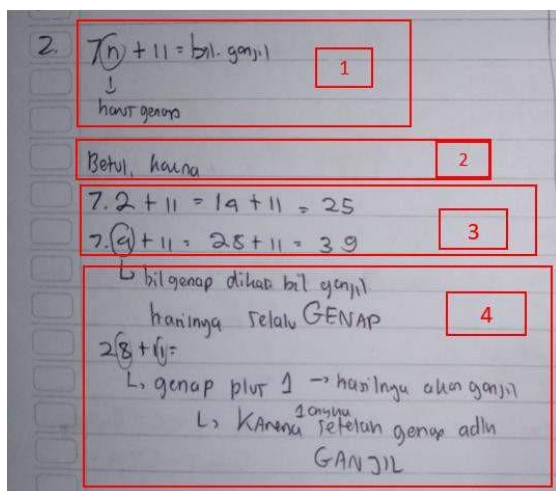 2. 7(n) + 11 = bil. ganjil
1
↓
harus genap
Betul, karna
2
7.2 + 11 = 14 + 11 = 25
7.(4) + 11 = 28 + 11 = 39
3
↳ bil genap dikali bil ganjil
hasilnya selalu GENAP
4
28 + 11 =
↳ genap plus 1 → hasilnya akan ganjil
↳ KArena 1 angka setelah genap adlh
GANJIL